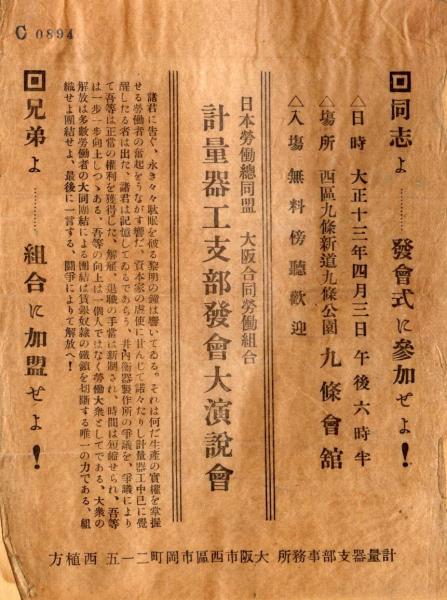 C 0894
回同志よ……發會式に參加せよ!
△日時 大正十三年四月三日午後六時半
△場所 西區九條新道九條公園 九條會舘
△入場無料傍聽歡迎
日本勞働總同盟 大阪合同勞働組合
計量器工支部發會大演說會
諸君に告ぐ、永き々々耽眠を破る黎明の鐘は響いてゐる。それは何だ生産の實權を掌握
せる勞働者の奮起をうながす響だ、資本家の虐使に甘んじて諾々たりし計量器工中已に覺
醒したる者は出た、諸君は記憶してゐるであらう、井內衡器製作所の爭議を、爭議により
て吾等は正常の權利を獲得した、解雇、退職の手當は新制され、時間は短縮せられ、吾等
は一步一步向上しつゝある、吾等の向上は一個人ではなく勞働大衆としてである、大衆の
解放は多數勞働者の大同團結による團結は賃銀奴隷の鐵鎖を切斷する唯一の力である、組
織せよ團結せよ、最後に一言する、鬪爭によりて解放へ!
回兄弟よ……組合に加盟せよ!
計量器支部事務所 大阪市西區市岡町二一五 西植方